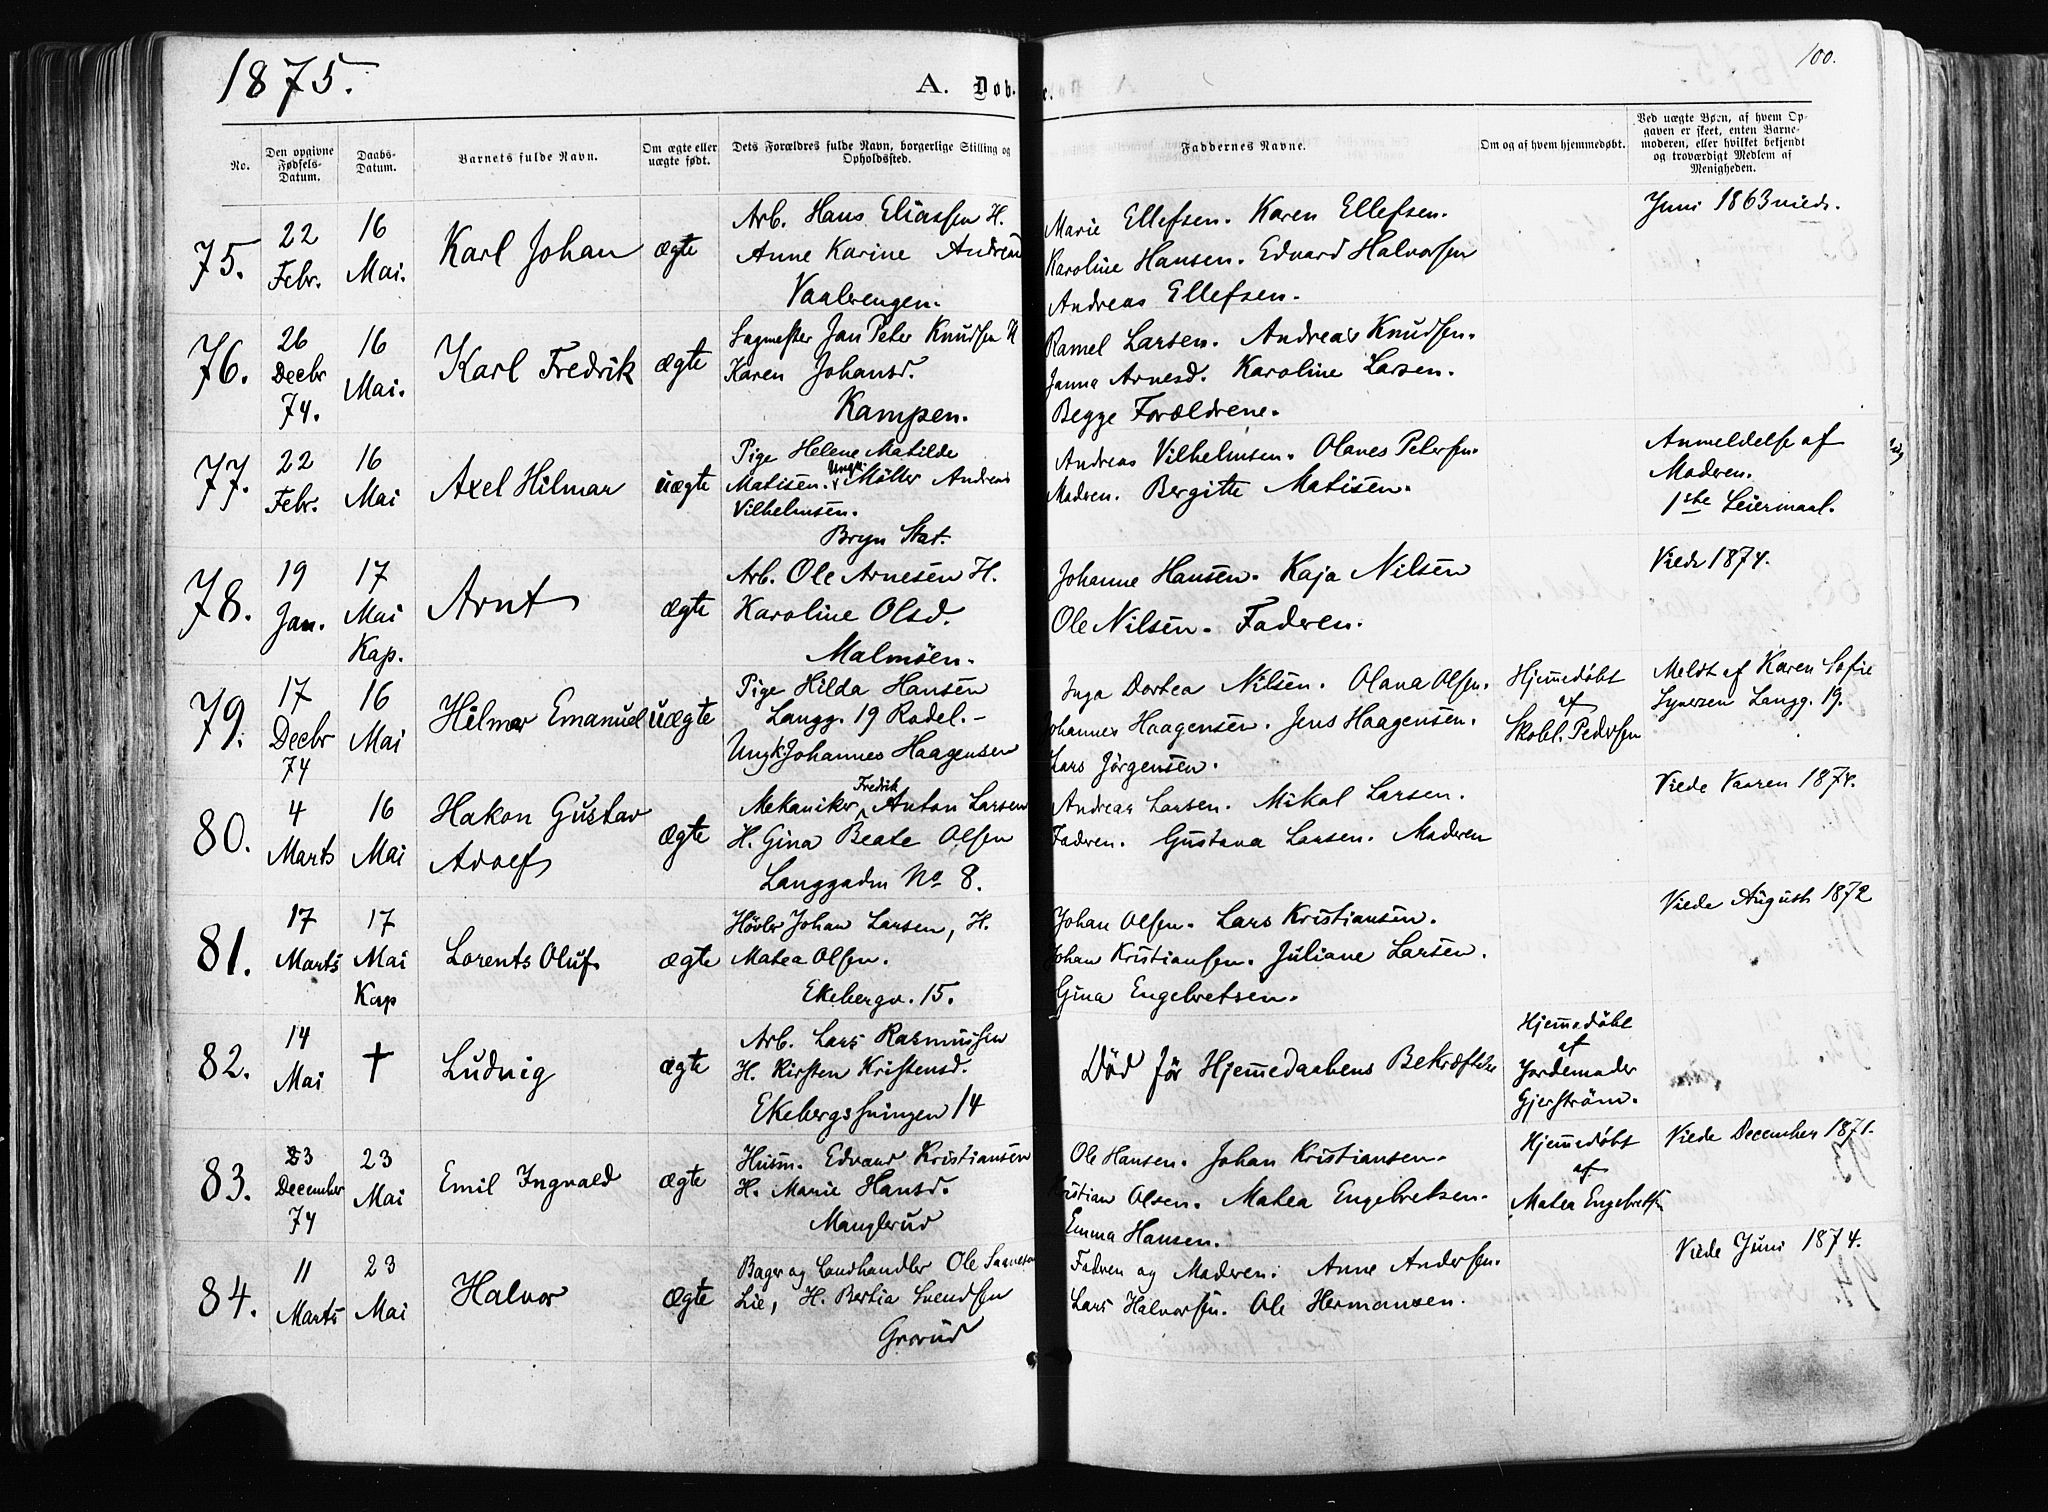 1875.
A. Døb
e.
100.
No.
Den opgivne Fødsels-Datum.
Daabs-Datum.
Barnets fulde Navn.
Om ægte eller uægte født.
Dets Forældres fulde Navn, borgerlige Stilling og Opholdssted.
Faddernes Navne.
Om og af hvem hjemmedøbt.
Ved uægte Børn, af hvem Opgaven er skeet, enten Barnemoderen, eller hvilket bekjendt og troværdigt Medlem af Menigheden.
75.
22 Febr.
16 Mai.
Karl Johan
ægte
Arb. Hans Eliassen H.
Anne Karine Andread
Vaalerengen.
Marie Ellefsen. Karen Ellefsen.
Karoline Hansen. Edvard Halvorsen
Andreas Ellefsen.
Juni 1863 vied.
76.
26 Decbr 74.
16 Mai.
Karl Fredrik
ægte
Sagmester Jan Peter Knudsen H
Karen Johansd.
Kampen.
Ramel Larsen. Andreas Knudsen.
Janna Arnesd. Karoline Larsen.
Begge Forældrene.
77.
22 Febr.
16 Mai
Axel Hilmar
uægte
Pige Helene Matilde
Matisen. Ungk. Möller Andreas
Vilhelmsen.
Bryn Stat.
Andreas Vilhelmsen. Olanes Petersen.
Modren. Bergitte Matisen.
Anmeldelse af
Modren.
1ste Leiermaal.
78.
19 Jan.
17 Mai Kap.
Arnt
ægte
Arb. Ole Arnesen H.
Karoline Olsd.
Malmöen.
Johanne Hansen. Kaja Nilsen
Ole Nilsen. Fadren.
Viede 1874.
79.
17 Decbr 74
16 Mai
Hilmar Emanuel
uægte
Pige Hilda Hansen
Langg. 19 Rodel.-
Ungk. Johannes Haagensen
Inga Dortea Nilsen. Olana Olsen.
Johannes Haagensen. Jens Haagensen.
Lars Jörgensen.
Hjemmedöbt
af
Skobl. Pedersen
Meldt af Karen Sofie
Syversen Langg. 19.
80.
4 Marts
16 Mai
Hakon Gustav
Adolf
ægte
Mekaniker Fredrik Anton Larsen
H. Gina Beate Olsen
Langgaden No 8.
Andreas Larsen. Mikal Larsen.
Fadren. Gustava Larsen. Modren
Viede Vaaren 1874.
81.
17 Marts
17 Mai Kap
Lorents Oluf.
ægte
Hövler Johan Larsen, H.
Matea Olsen.
Ekebergv. 15.
Johan Olsen. Lars Kristiansen.
Johan Kristiansen. Juliane Larsen.
Gina Engebretsen.
Viede August 1872
82.
14 Mai
†
Ludvig
ægte
Arb. Lars Rasmussen
H. Kirsten Kristensd.
Ekebergssvingen 14
Död för Hjemmedaabens Bekræftelse
Hjemmedöbt
af
Jordemoder
Gjerström.
83.
23 December 74
23 Mai
Emil Ingvald
ægte
Husm. Edvard Kristiansen
H. Marie Hansd.
Manglerud
Ole Hansen. Johan Kristiansen.
Kristian Olsen. Matea Engebretsen.
Emma Hansen.
Hjemmedöbt
af
Matea Engebretsn
Viede December 1871.
84.
11 Marts
23 Mai
Halvor
ægte
Bager og Landhandler Ole
Lie, H. Bertia Svendsen
Grorud
Fadren og Modren. Anne Andersen.
Lars Halvorsen. Ole Hermansen.
Viede Juni 1874.